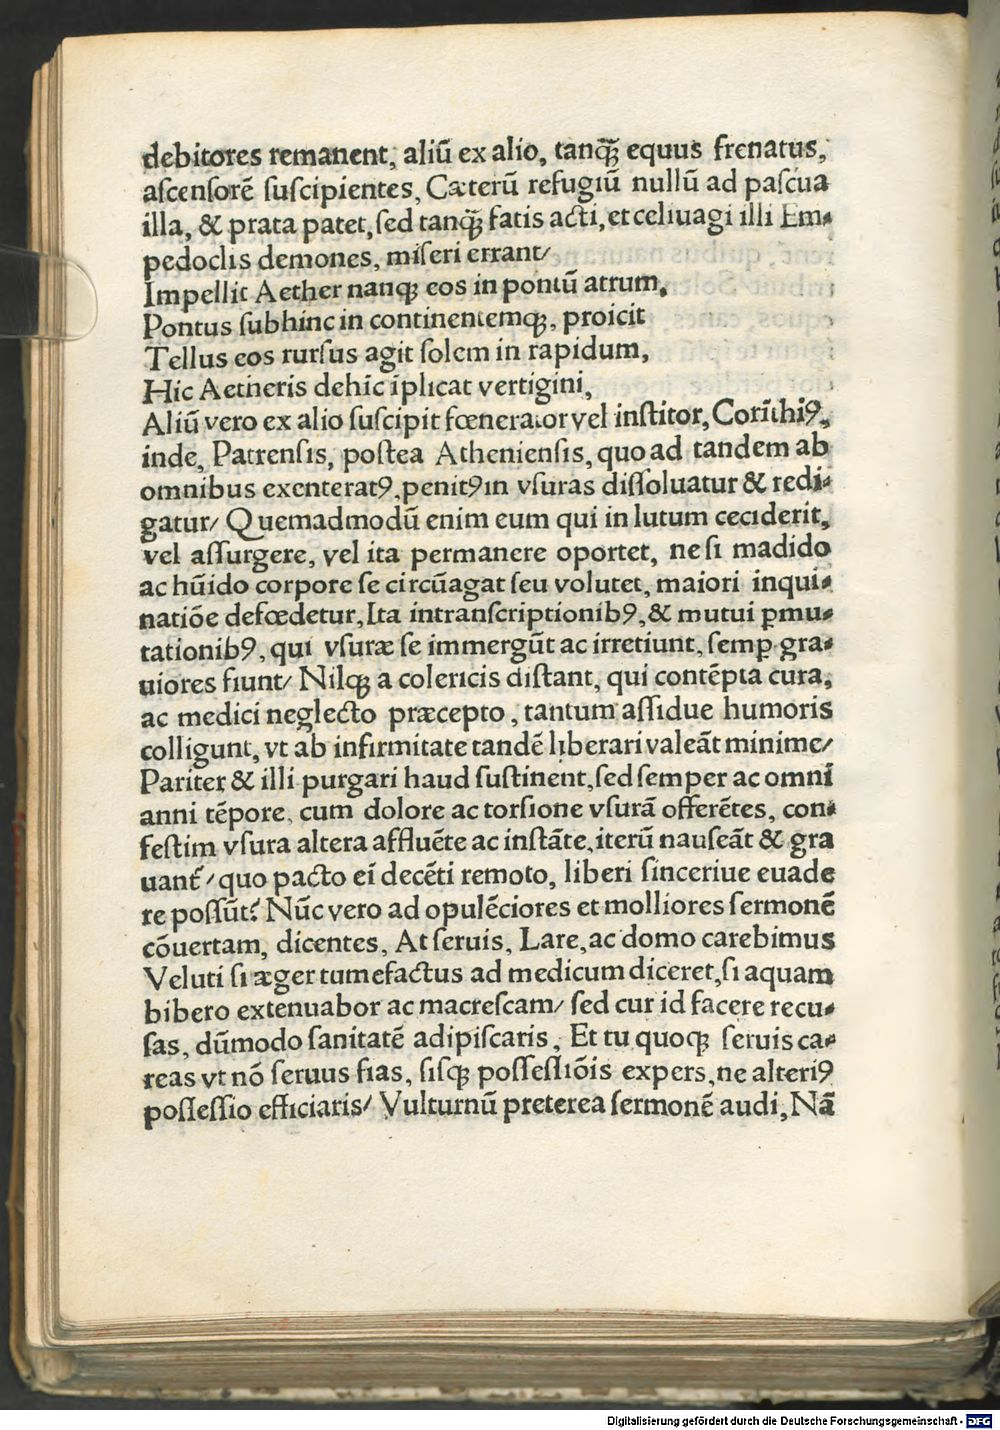 debitores remanent, aliū ex alio, tanq̃ꝫ equus frenatus,
aſcenſorē ſuſcipientes, Cæterū refugiū nullū ad paſcua
illa, & prata patet, ſed tanq̃ꝫ fatis acti, et celiuagi illi Em⸗
pedoclis demones, miſeri errant/
Impellit Aether nanqꝫ eos in pontū atrum,
Pontus ſubhinc in continentemqꝫ, proicit
Tellus eos rurſus agit ſolem in rapidum,
Hic Aetheris dehīc īplicat vertigini,
Aliū vero ex alio ſuſcipit fœnerator vel inſtitor, Corīthiꝯ,
inde, Patrenſis, poſtea Athenienſis, quo ad tandem ab
omnibus exenteratꝯ, penitꝯ in vſuras diſſoluatur & redi⸗
gatur/ Quemadmodū enim eum qui in lutum ceciderit,
vel aſſurgere, vel ita permanere oportet, ne ſi madido
ac hūido corpore ſe circūagat ſeu volutet, maiori inqui⸗
natiōe defœdetur, Ita intranſcriptionibꝯ, & mutui ꝑmu⸗
tationibꝯ, qui vſuræ ſe immergūt ac irretiunt, ſemꝑ gra⸗
uiores fiunt/ Nilqꝫ a colericis diſtant, qui contēpta cura,
ac medici neglecto præcepto, tantum aſſidue humoris
colligunt, vt ab infirmitate tandē liberari valeāt minime/
Pariter & illi purgari haud ſuſtinent, ſed ſemper ac omni
anni tēpore, cum dolore ac torſione vſurā offerētes, con⸗
feſtim vſura altera affluēte ac inſtāte, iterū nauſeāt & gra
uant᷑/ quo pacto eī decēti remoto, liberi ſinceriue euade
re poſſūt? Nūc vero ad opulēciores et molliores ſermonē
cōuertam, dicentes, At ſeruis, Lare, ac domo carebimus
Veluti ſi æger tumefactus ad medicum diceret, ſi aquam
bibero extenuabor ac macreſcam/ ſed cur id facere recu⸗
ſas, dūmodo ſanitatē adipiſcaris, Et tu quoqꝫ ſeruis ca⸗
reas vt nō ſeruus fias, ſiſqꝫ poſſeſſiōis expers, ne alteriꝯ
poſſeſſio efficiaris/ Vulturnū preterea ſermonē audi, Nā
Digitalisierung gefördert durch die Deutsche Forschungsgemeinschaft - DFG